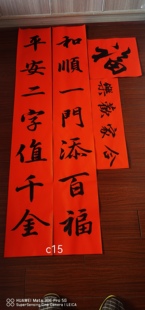 和順一門添百福
平安二字值千金
合家歡樂
福
c15
HUAWEI Mate 30 Pro 5G
SuperSensing Cine Camera | LEICA